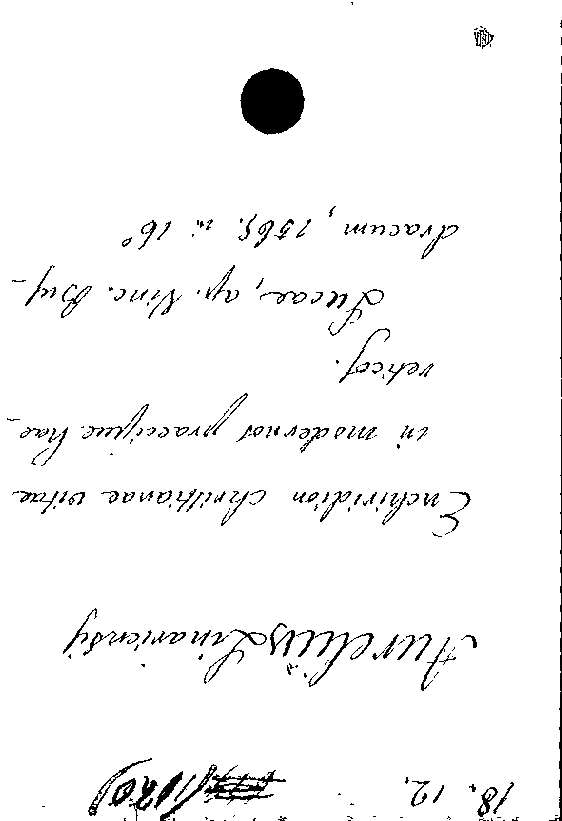 18. 12.
Aurelius Linariensis
Enchiridion christianae vitae
in modernos praecipue hae-
reticos.
Lucae, ap. Vinc. Bus-
dracum, 1565. in 16°